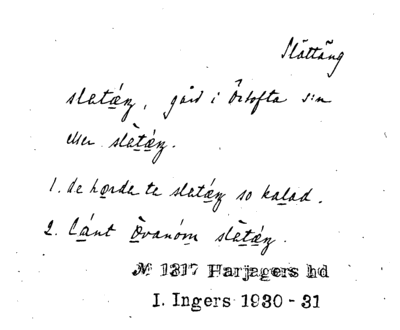 Slättäng
slatæŋ, gård i Örtofta s:n
eller slètæŋ.
1. de hørde te slatæŋ so kalad.
2. lánt òvanóm slètæŋ.
№ 1317 Harjagers hd
I. Ingers 1930-31